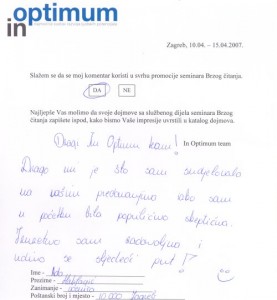 optimum
in
Zagreb, 10.04. – 15.04.2007.
Slažem se da se moj komentar koristi u svrhu promocije seminara Brzog čitanja.
DA NE
Najljepše Vas molimo da svoje dojmove sa službenog dijela seminara Brzog
čitanja zapišete ispod, kako bismo Vaše impresije uvrstili u katalog dojmova.
Dragi In Optimum team!
In Optimum team
Drago mi je što sam sudjelovala
na vašim predavanjima iako sam
u početku bila popriлično skeptična.
Izuzetno sam zadovoljna i
vidimo se sljedeći put!!
Ime -
Prezime -
Zanimanje -
Poštanski broj i mjesto - 10 000 Zagreb